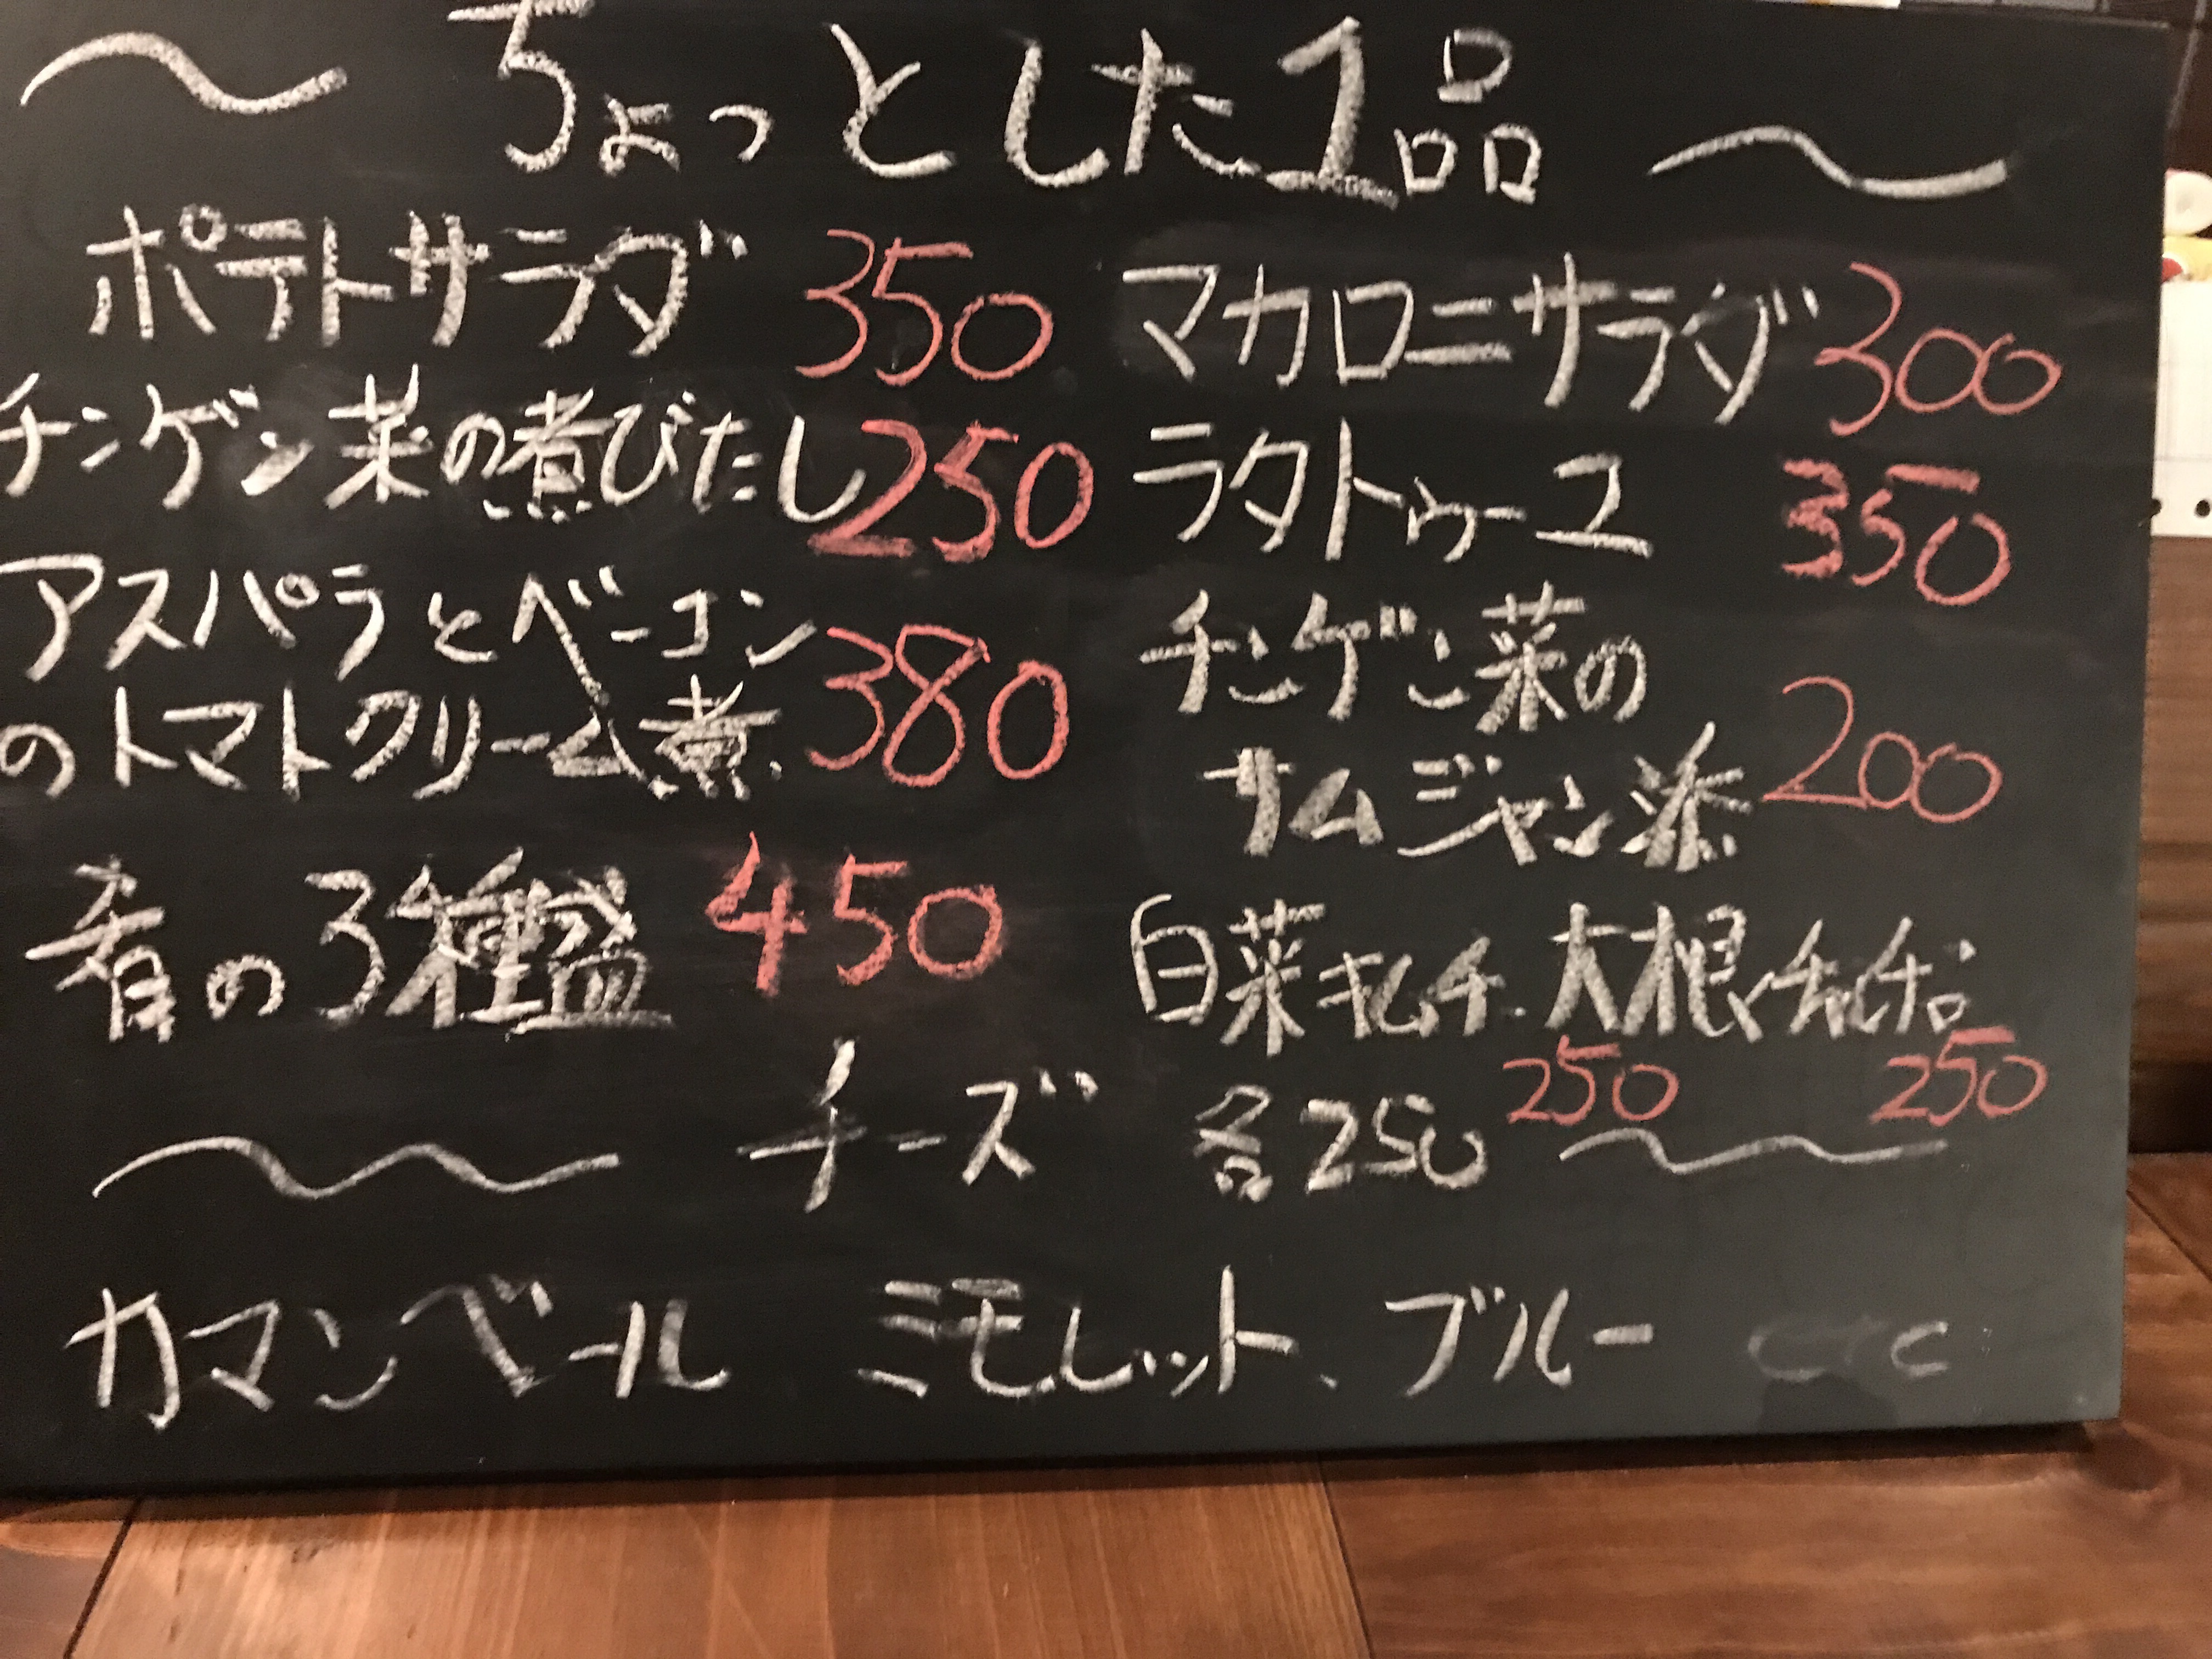 ～ ちょっとした1品 ～
ポテトサラダ 350
チンゲン菜の煮びたし 250
アスパラとベーコン
のトマトクリーム煮 380
肴の3種盛 450
マカロニサラダ 300
ラタトゥーユ 350
チンゲン菜の
サムジャン添 200
白菜キムチ 大根
250 250
チーズ 各250
カマンベール ミモレット、ブルー etc